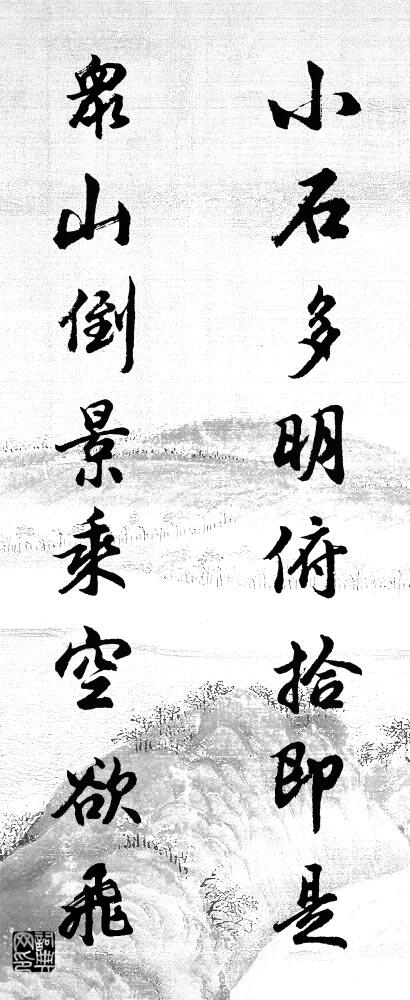 小石多明俯拾即是
眾山倒景乘空欲飛